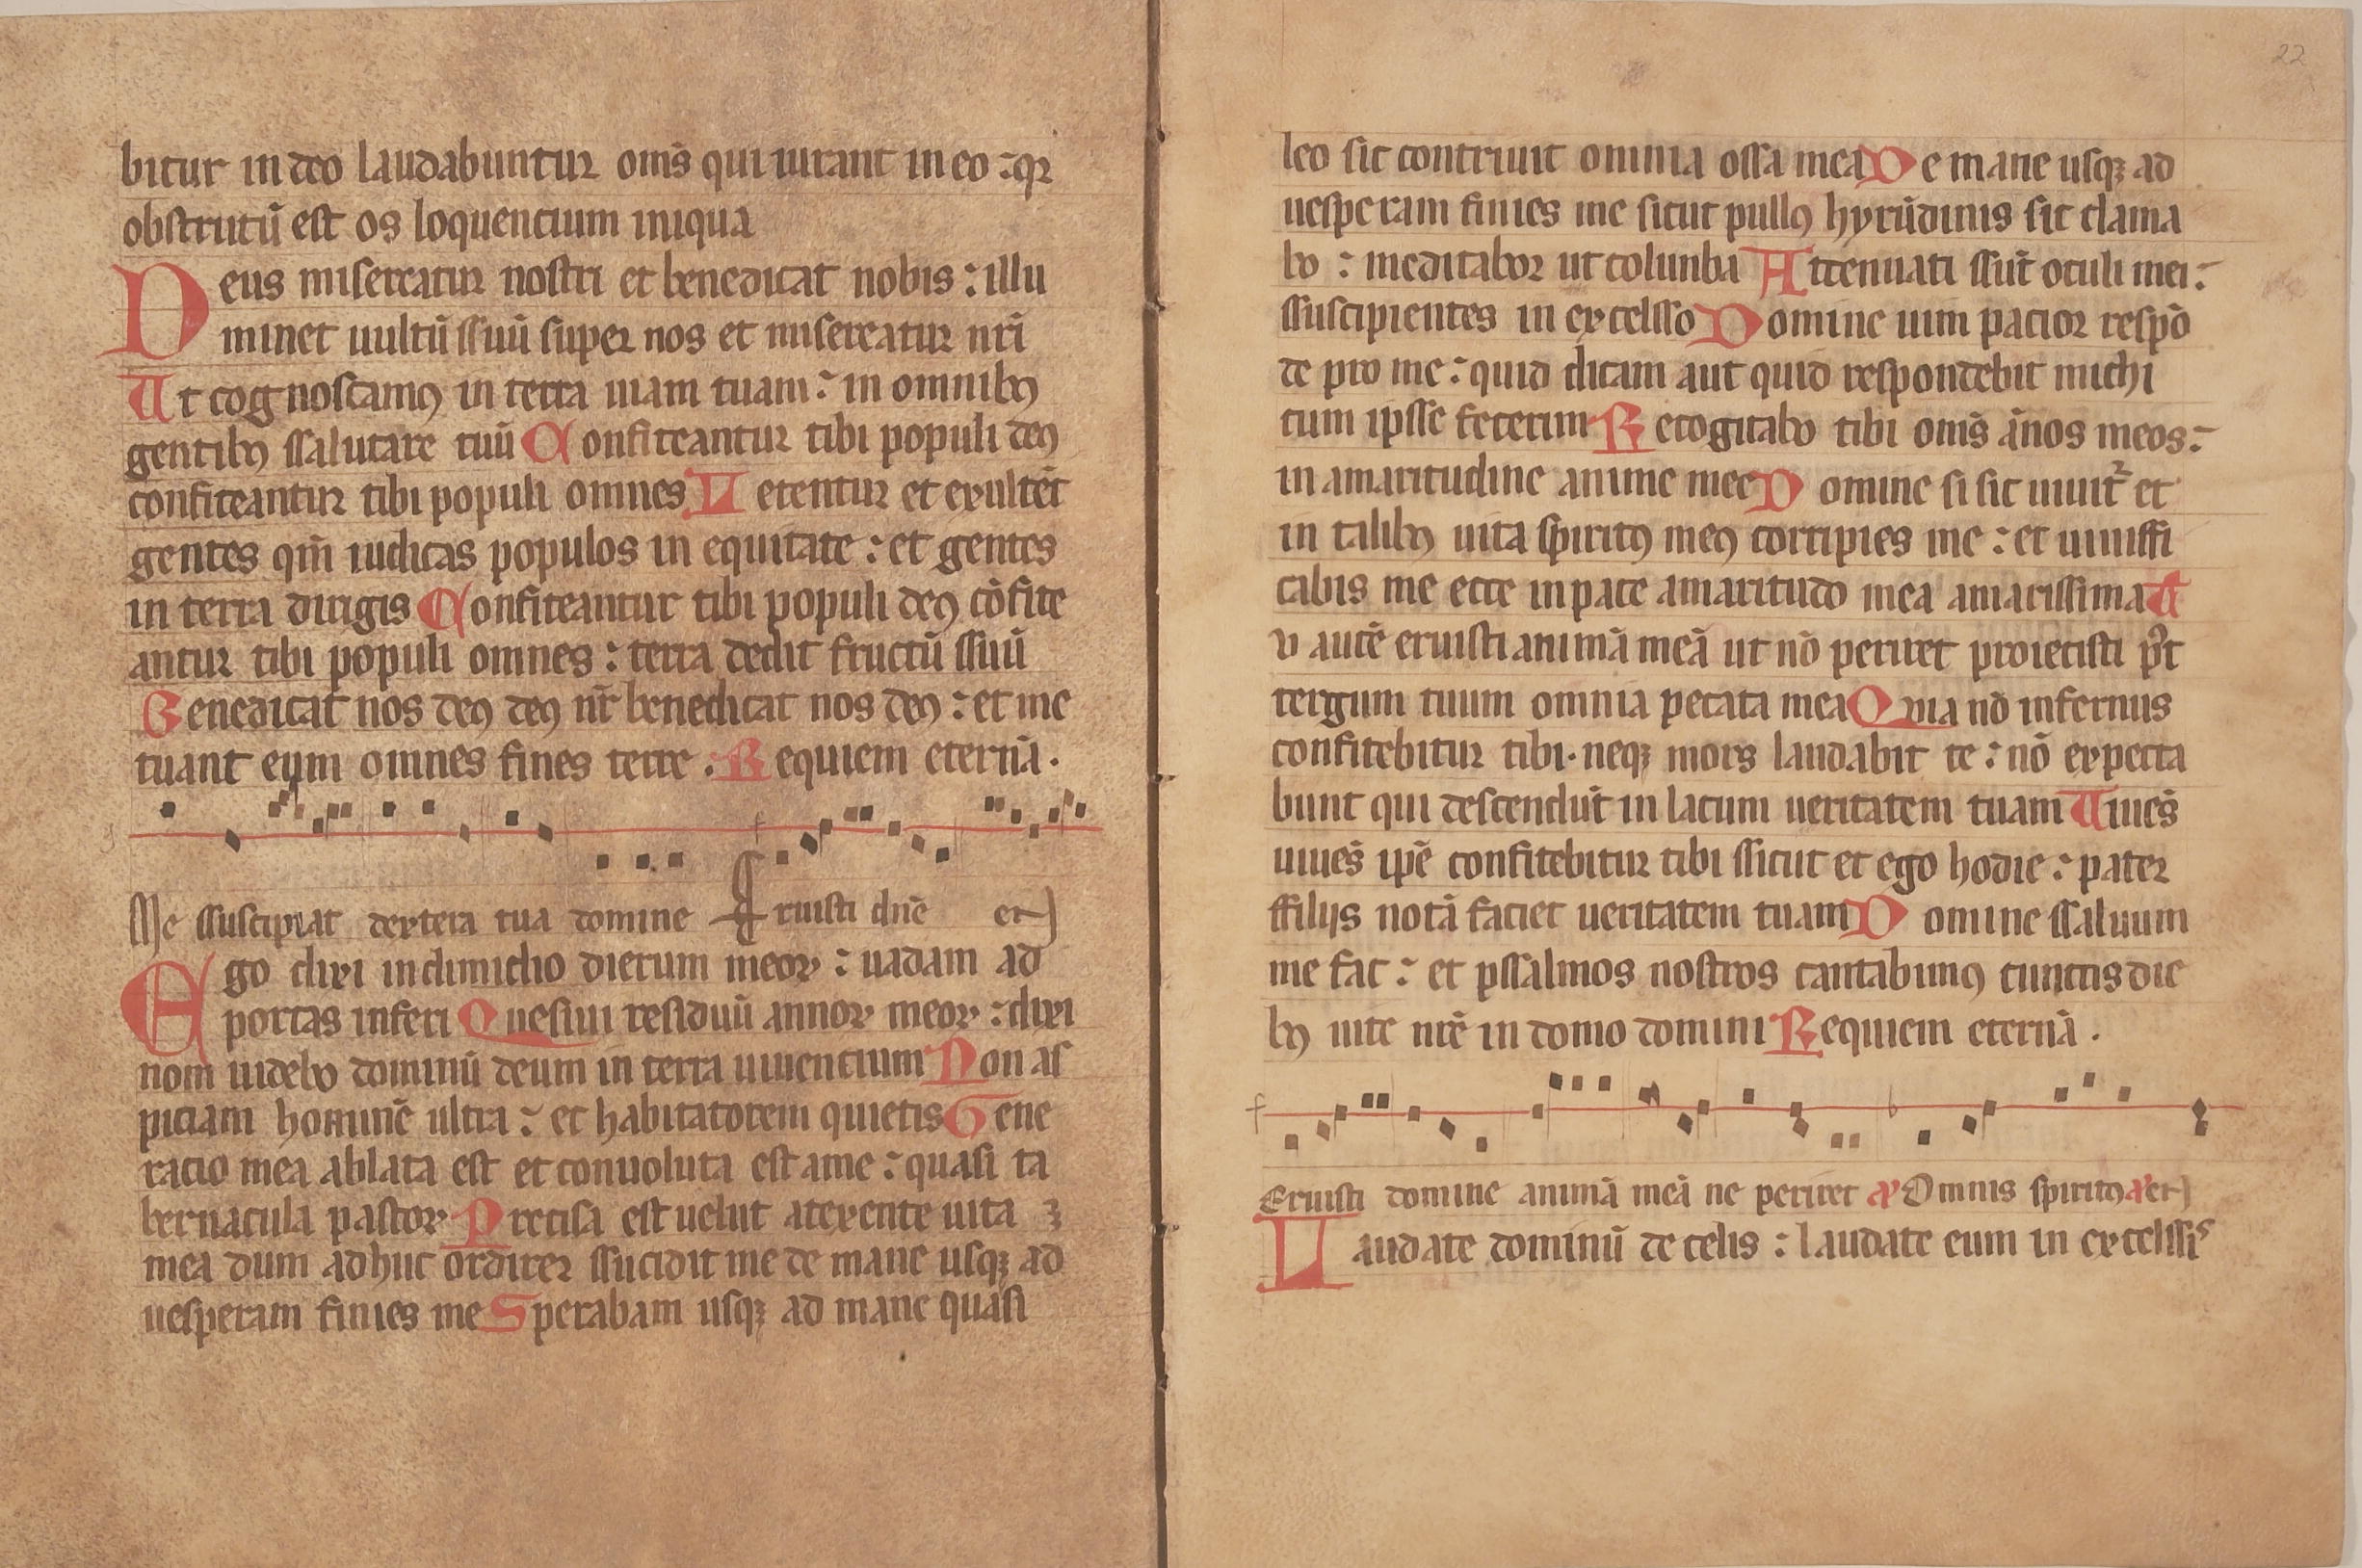 bitur in deo laudabuntur om̄s qui iurant in eo : qꝛ
obstrutū est os loquencium iniqua
Deus misereatur nostri et benedicat nobis : illu
minet uultū ssuū super nos et misereatur nr̄i
Ut cognoscamꝯ in terra uiam tuam : in omnibꝯ
gentibꝯ ssalutare tuū Confiteantur tibi populi deꝯ
confiteantur tibi populi omnes Letentur et exultēt
gentes qm̄ iudicas populos in equitate : et gentes
in terra dirigis Confiteantur tibi populi deꝯ cōfite
antur tibi populi omnes : terra dedit fructū ssuū
Benedicat nos deꝯ deꝯ nr̄ benedicat nos deꝯ : et me
tuant eum omnes fines terre : Requiem eternā .
Me ssuscipiat dextera tua domine Eruisti dn̄e
Ego dixi indimidio dierum meoꝝ : uadam ad
portas inferi Quesiui residuū annoꝝ meoꝝ : dixi
nom uidebo dominū deum in terra uiuencium Non as
piciam hominē ultra : et habitatorem quietis Gene
racio mea ablata est et conuoluta est ame : quasi ta
bernacula pastoꝝ Precisa est uelut atexente uita
mea dum adhuc ordirer ssucidit me de mane usqꝫ ad
uesperam finies me Sperabam usqꝫ ad mane quasi
22
leo sic contriuit omnia ossa mea De mane usqꝫ ad
uesperam finies me sicut pullꝯ hyrūdinis sic clama
bo : meditabor ut colunba Attenuati ssūt oculi mei :
ssuscipientes in excelsso Domine uim pacior respō
de pro me : quid dicam aut quid respondebit michi
cum ipsse fecerim Recogitabo tibi om̄s ānos meos :
in amaritudine anime mee Domine si sic uiuit᷑ et
in talibꝯ uita spiritꝯ meꝯ corripies me : et uiuiffi
cabis me ecce inpace amaritudo mea amarissima T
u autē eruisti animā meā ut nō periret proiecisti p̄t
tergum tuum omnia pecata mea Quia nō infernus
confitebitur tibi · neqꝫ mors laudabit te : nō expecta
bunt qui descendūt in lacum ueritatem tuam Uiuēs
uiuēs ip̄e confitebitur tibi ssicut et ego hodie : pater
ffilijs notā faciet ueritatem tuam Domine ssaluum
me fac : et pssalmos nostros cantabimꝯ cunctis die
bꝯ uite nr̄e in domo domini Requiem eternā .
Eruisti domine animā meā ne periret aꝰ Omnis spiritꝯ
Laudate dominū de celis : laudate eum in excelssis